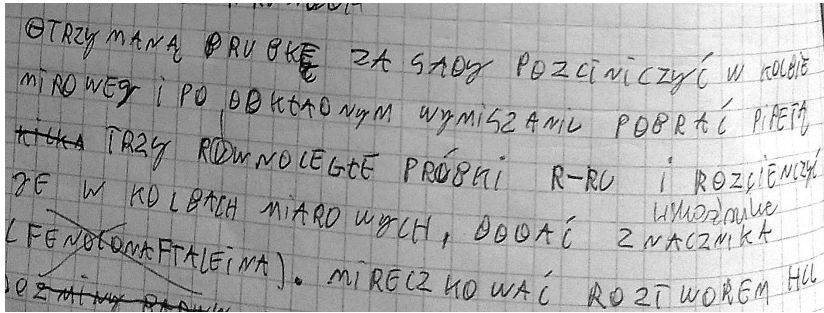 OTRZYMANĄ PRUBKĘ ZASADY POZCINICZYĆ W KOLBIE
MIROWEJ I PO DOKŁADNYM WYMISZANIU POBRAĆ PIPETĄ
TRZY RÓWNOLEGŁE PRÓBKI R-RU I ROZCIENCZYĆ
JE W KOLBACH MIAROWYCH, DODAĆ ZNACZNIKA
(FENOLOMAFTALEINA). MIRECZKOWAĆ ROZTWOREM HCL